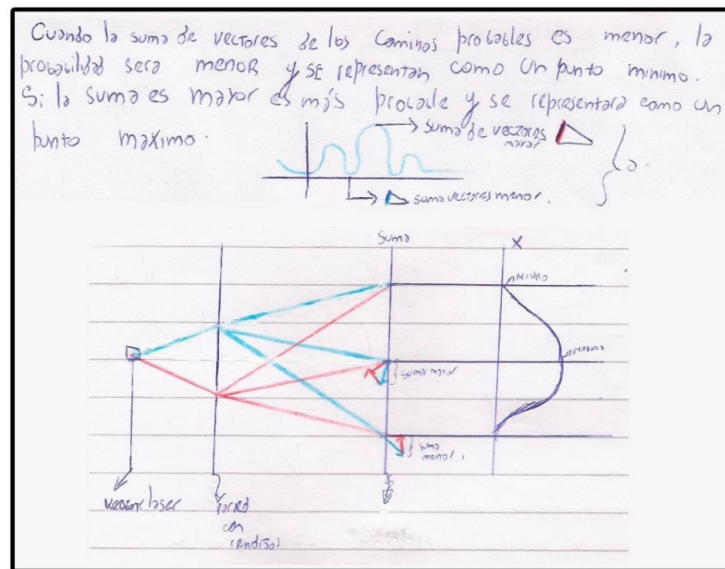 Cuando la suma de vectores de los caminos probables es menor, la
probabilidad sera menor y se representan como un punto minimo.
Si la suma es mayor es más probable y se representará como un
punto maximo.
suma de vectores
mayor
a.
suma vectores menor.
Suma
X
Minimo
Maximo
suma mayor
suma
menor
laser
pared
con
rendijas